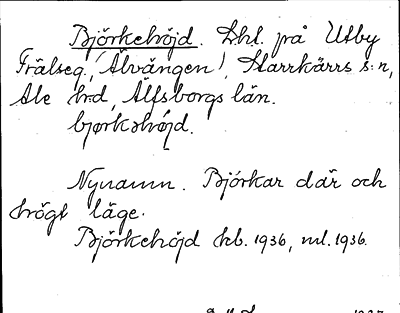 Björkehöjd. Lht. på Utby
Frälseg. (Älvängen), Starrkärrs s:n,
Ale hd, Älfsborgs län.
bjørkəhøjd.
Nynamn. Björkar där och
högt läge.
Björkehöjd kb. 1936, ml. 1936.